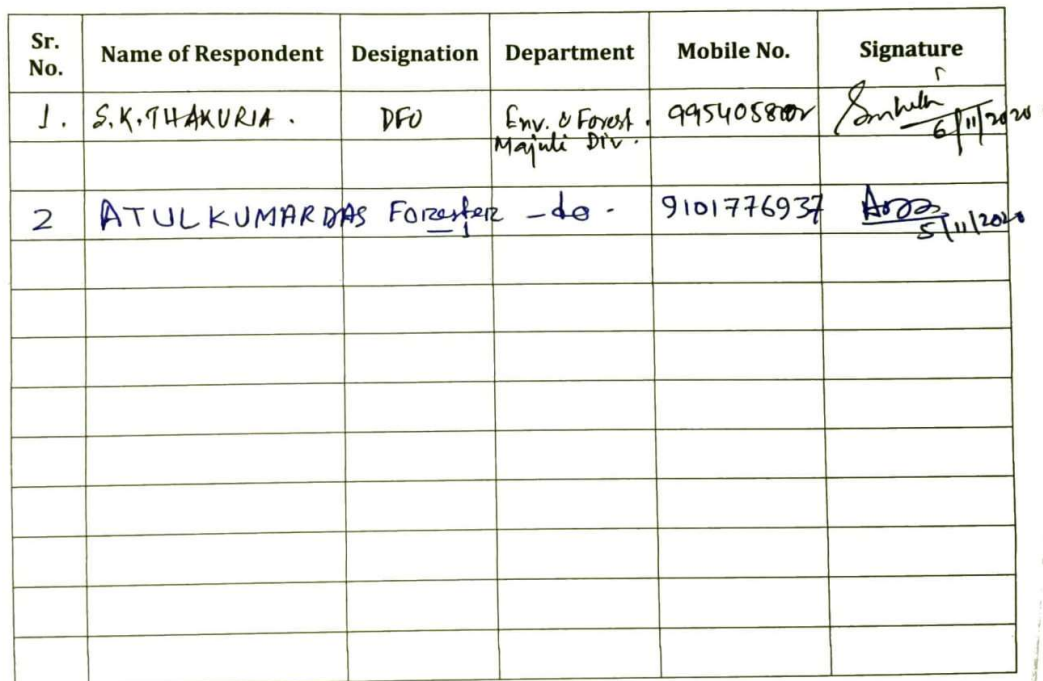 Sr. No. Name of Respondent Designation Department Mobile No. Signature
1. S.K. THAKURIA. DFO Env. & Forest.
Majuli Div.
6/11/2020
2 ATUL KUMAR DAS Forester-1 -do- 9101776937
5/11/2020